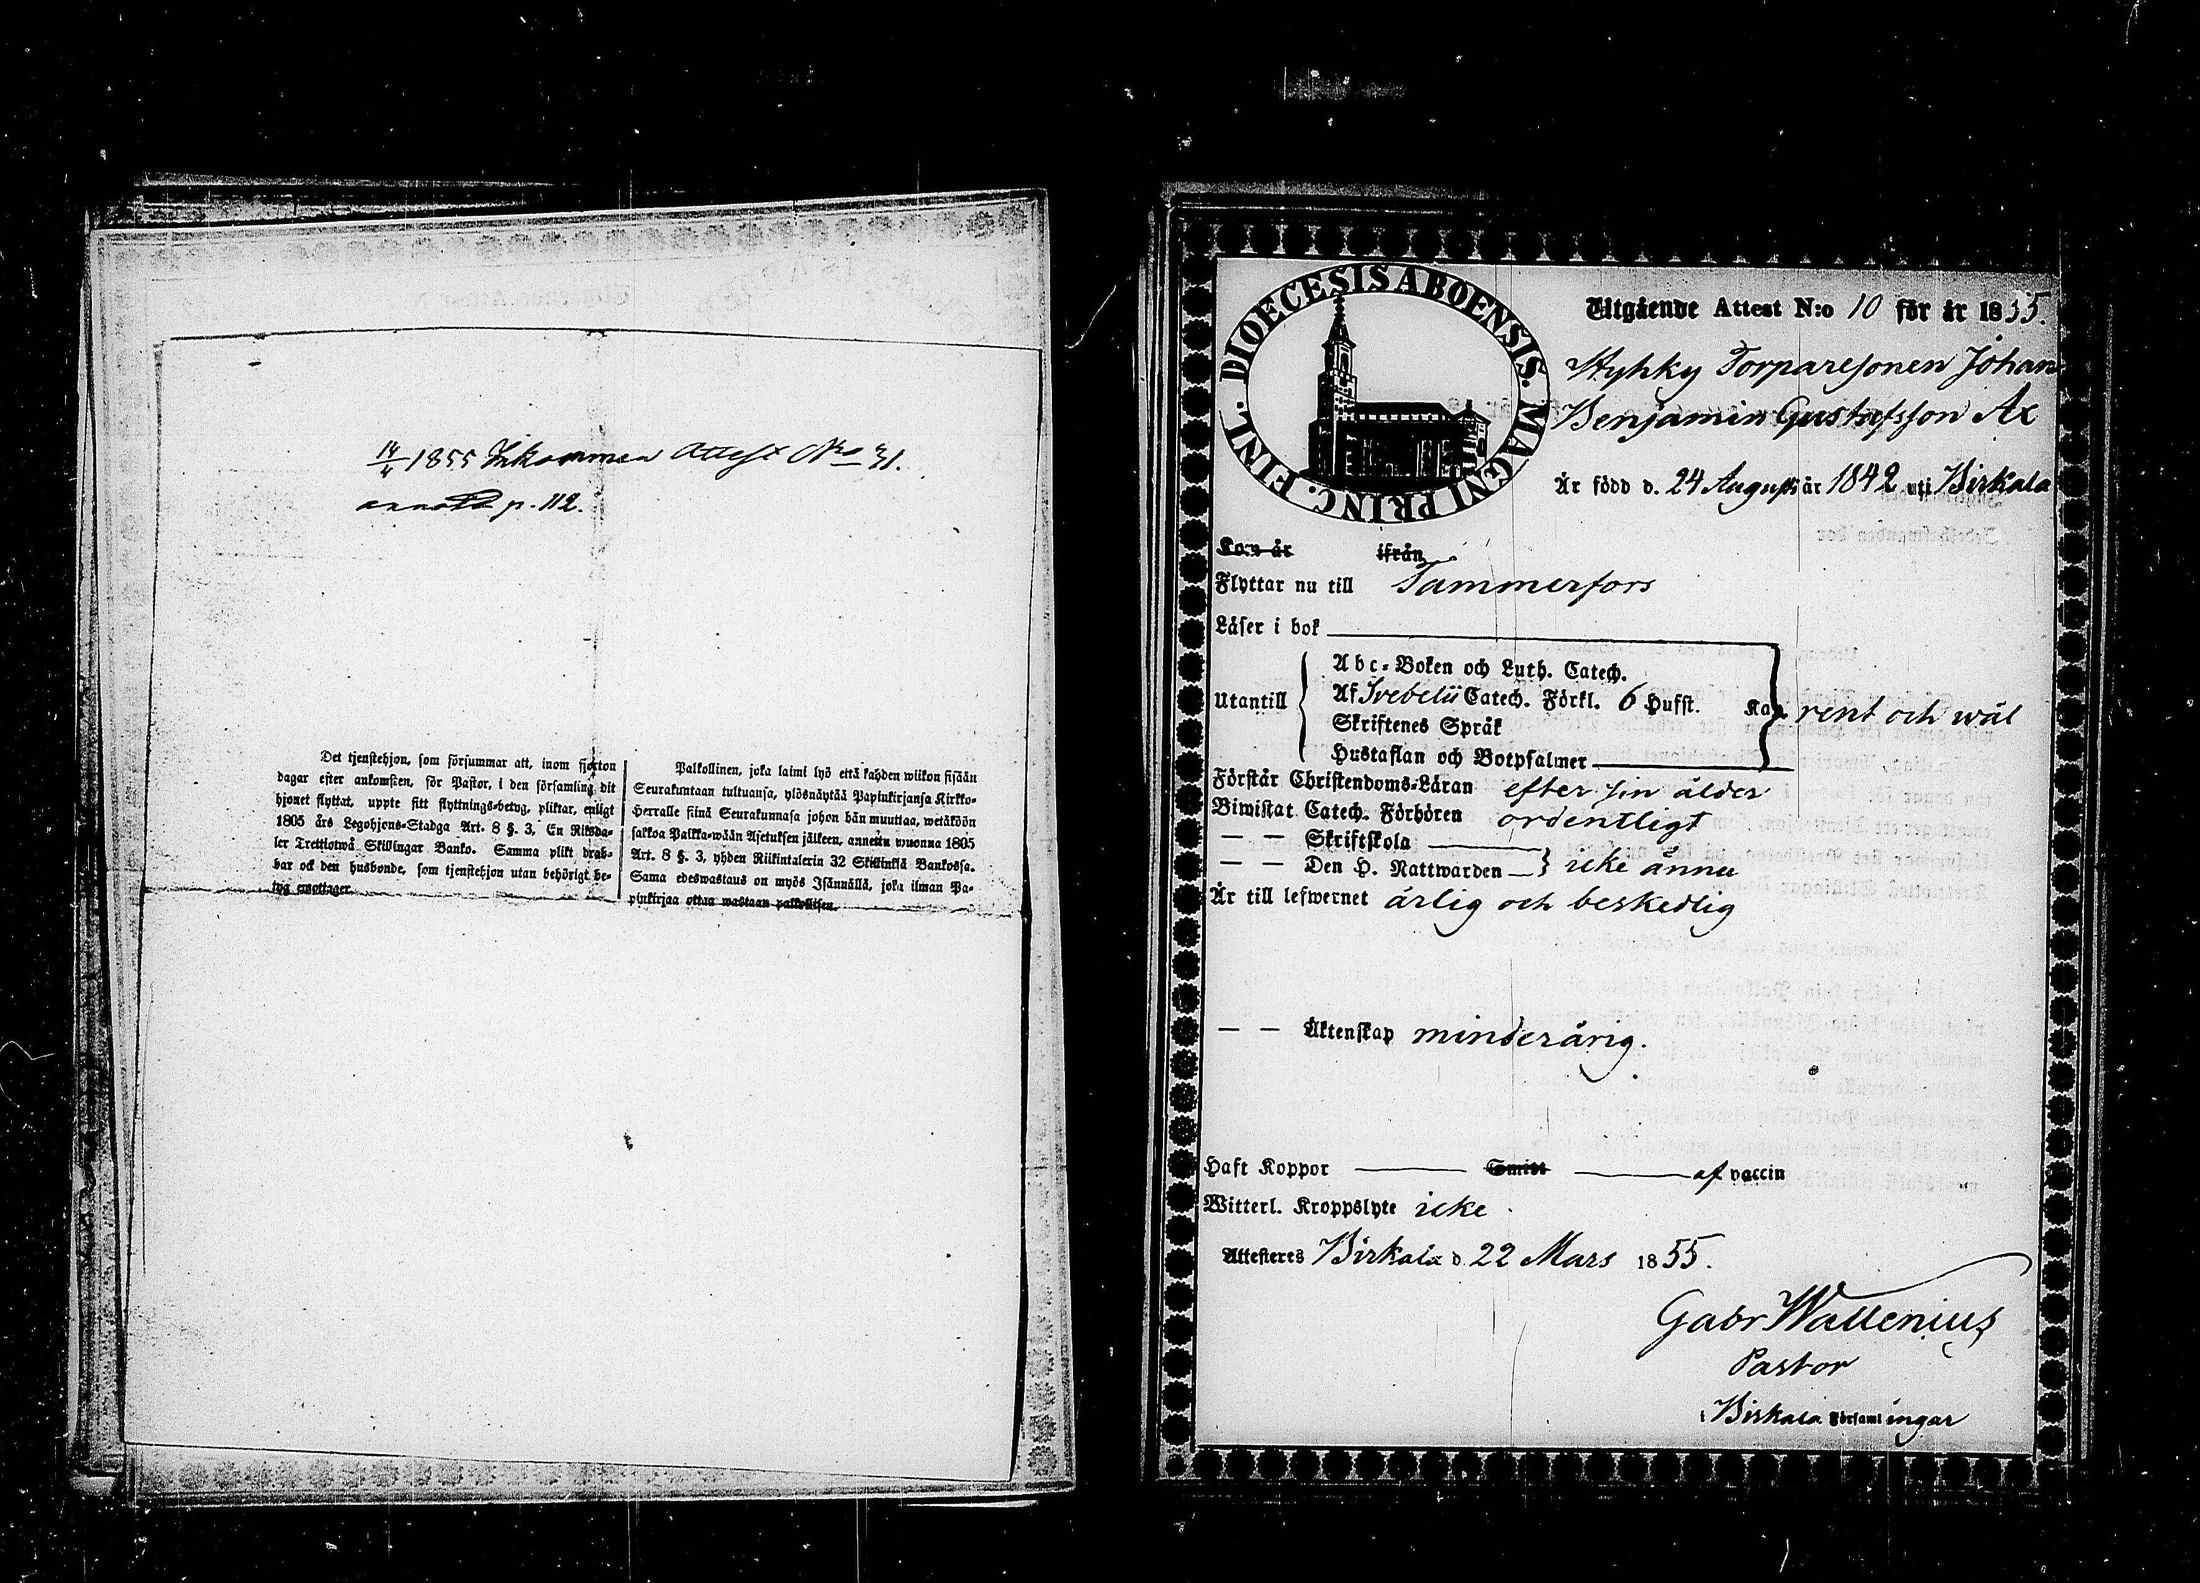 14/4 1855 Inkommen Attest No 31.
p. 112.
Det tjenstehjon, som försummar att, inom fjorton
dagar efter ankomsten, för Pastor, i den församling dit
hjonet flyttat, uppte sitt flyttnings-betyg, pliktar, enligt
1805 års Legohjons-Stadga Art. 8 §. 3, En Riksda-
ler Trettiotwå Skillingar Banko. Samma plikt drab-
bar ock den husbonde, som tjenstehjon utan behörigt be-
tyg emottager.
Palkollinen, joka laimi lyö että kahden wiikon sisään
Seurakuntaan tultuansa, ylösnäytää Papinkirjansa Kirkko-
Herralle siinä Seurakunnasa johon hän muuttaa, wetäköön
sakkoa Palkka-wään Asetuksen jälkeen, annettu wuonna 1805
Art. 8 §. 3, yhden Riikintalerin 32 Skillinkiä Bankossa.
Sama edeswastaus on myös Isännällä, joka ilman Pa-
pinkirjaa ottaa wastaan palkollisen.
DIOECESIS ABOENSIS. MAGNI PRINC. FINL.
Utgående Attest N:o 10 för år 1855.
Hyhky Torparesonen Johan
Benjamin Gustafsson Ax
Är född d. 24 Augusti år 1842 uti Birkala
Kom år ifrån
Flyttar nu till Tammerfors
Läser i bok
Abc-Boken och Luth. Catech.
Utantill Af Svebelii Catech. Förkl. 6 Hufst. Kap. rent och wäl
Skriftenes Språk
Hustaflan och Botpsalmer
Förstår Christendoms-Läran efter sin ålder
Biwistat Catech. Förhören ordentligt
— — Skriftskola
— — Den H. Nattwarden icke ännu
Är till lefwernet ärlig och beskedlig
— — Äktenskap minderårig.
Haft Koppor Smitt af vaccin
Witterl. Kroppslyte icke
Attesteres Birkala d. 22 Mars 1855.
Gabr Wallenius
Pastor
i Birkala Församlingar